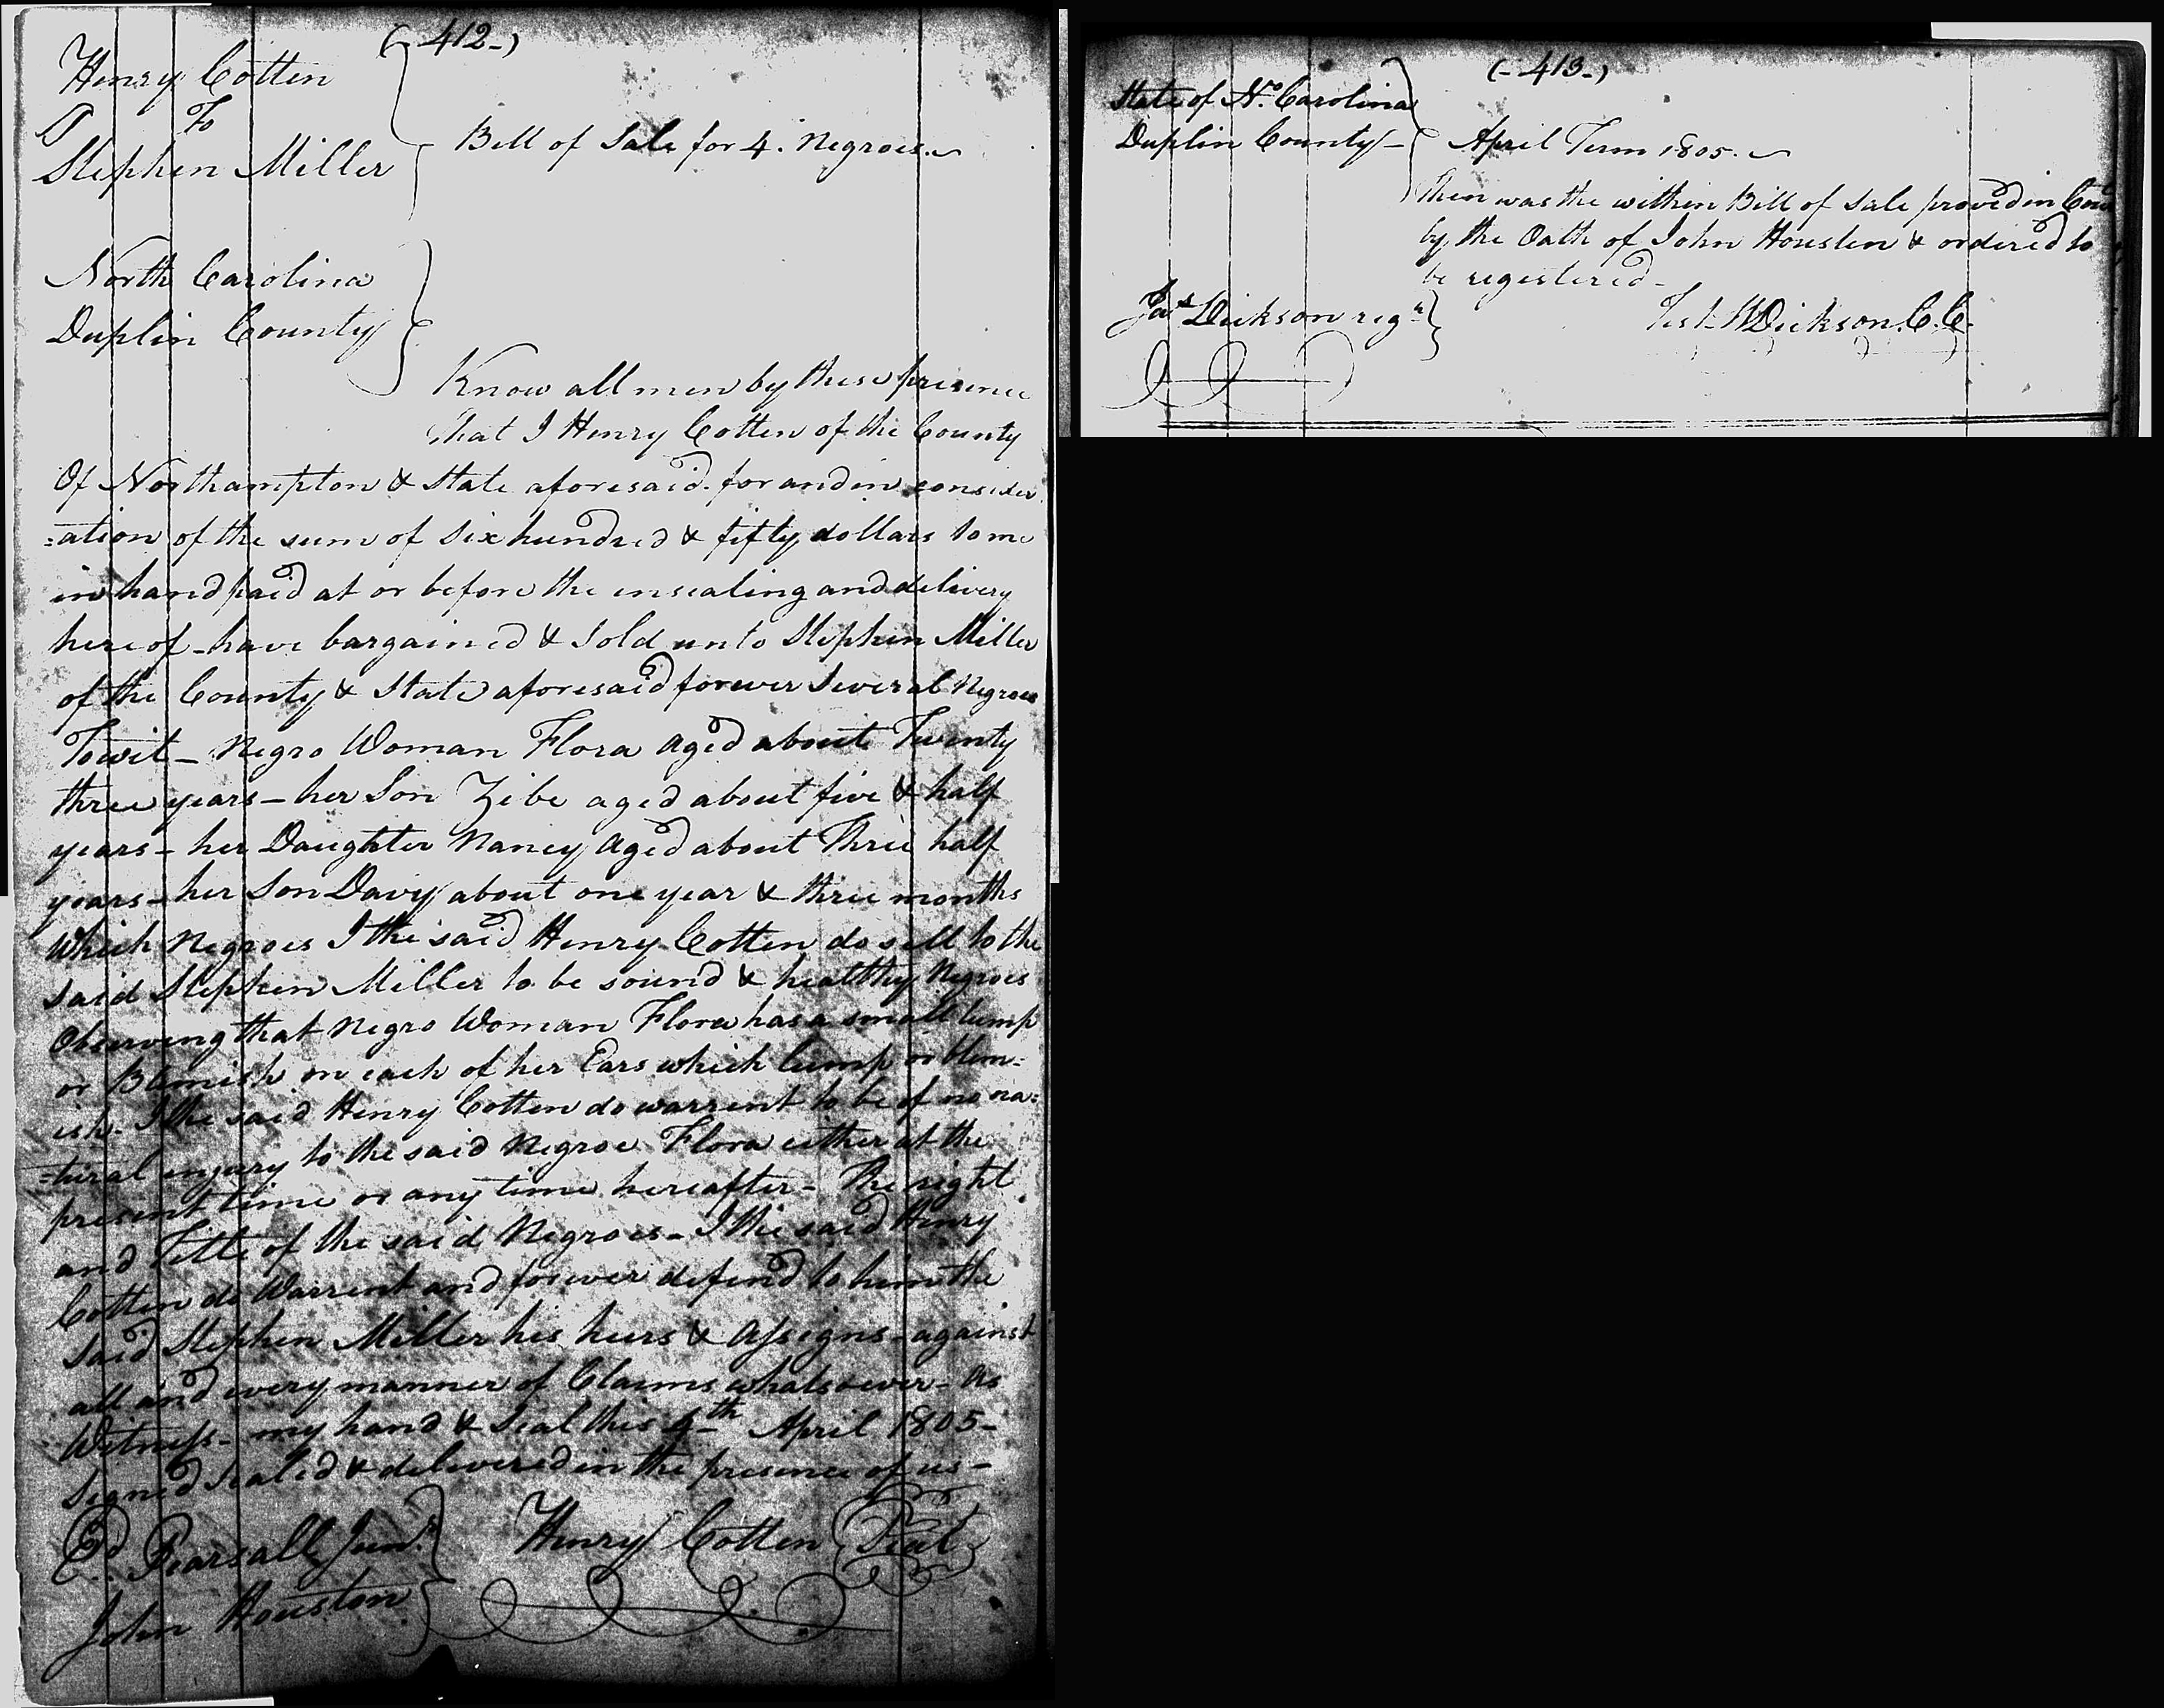 (-412-)
Henry Cotten
To
Stephen Miller
Bill of Sale for 4. Negroes.
North Carolina
Duplin County
Know all men by these presence
That I Henry Cotten of the County
Of Northampton & State aforesaid. for and in consider
=ation of the sum of Six hundred & fifty dollars to me
in hand paid at or before the ensealing and delivery
hereof - have bargained & Sold unto Stephen Miller
of the County & State aforesaid forever Several Negroes
Towit - Negro Woman Flora aged about Twenty
three years - her Son Zibe aged about five & half
years - her Daughter Nancy aged about Three half
years - her Son Davy about one year & three months
which Negroes I the said Henry Cotten do sell to the
said Stephen Miller to be sound & healthy Negroes
Observing that Negro Woman Flora has a small lump
or Blemish on each of her Ears which lump or blem=
ish. I the said Henry Cotten do warrent to be of no na=
=tural enjury to the said Negroe Flora either at the
present time or any time hereafter - The right
and Title of the said Negroes - I the said Henry
Cotten do Warrent and forever defend to him the
said Stephen Miller his heirs & assigns - against
all and every manner of Claims whatsoever - As
Witness - my hand & Seal this 4th April 1805 -
Signed Sealed & delivered in the presence of us -
Ed. Pearsall Junr.
Henry Cotten Seal
John Houston
(-413-)
State of No. Carolina
Duplin County -
April Term 1805.
Then was the within Bill of Sale proved in
by the Oath of John Houston & ordered to
be registered -
Jas Dickson regr
Test W Dickson C.C.